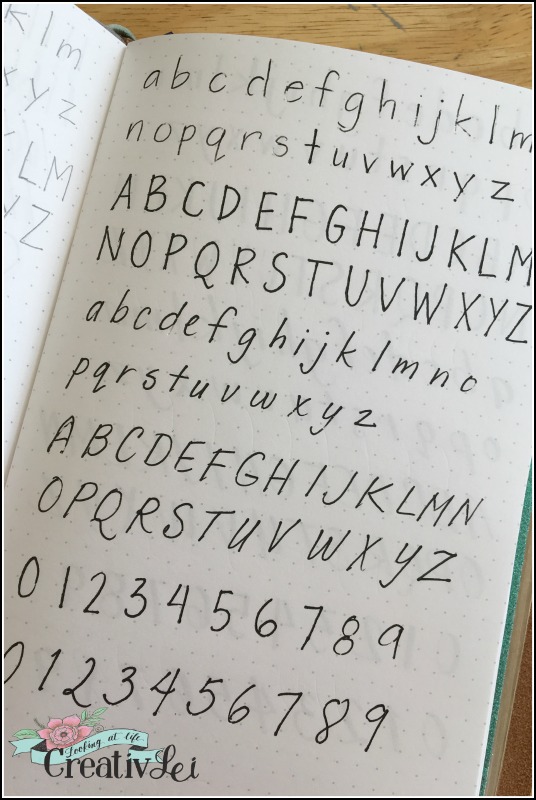 k l m
x y z
L M
Y Z
a b c d e f g h i j k l m
n o p q r s t u v w x y z
A B C D E F G H I J K L M
N O P Q R S T U V W X Y Z
a b c d e f g h i j k l m n o
p q r s t u v w x y z
A B C D E F G H I J K L M N
O P Q R S T U V W X Y Z
0 1 2 3 4 5 6 7 8 9
0 1 2 3 4 5 6 7 8 9
Looking at life
CreativLei